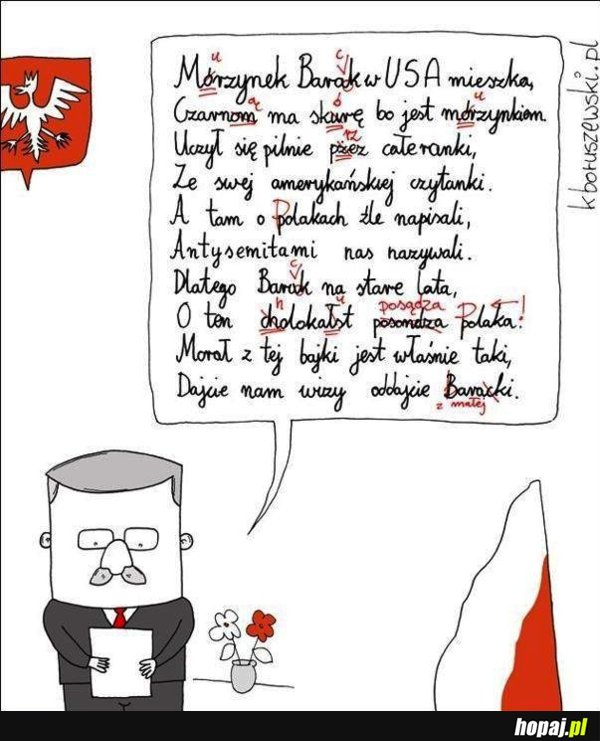 Mórzynek Barak w USA mieszka,
Czarnom ma skurę bo jest mórzynkiem.
Uczył się pilnie pżez całe ranki,
Ze swej amerykańskiej czytanki.
A tam o polakach źle napisali,
Antysemitami nas nazywali.
Dlatego Barak na stare lata,
O ten cholokałst posondza polaka!
posądza
Morał z tej bajki jest właśnie taki,
Dajcie nam wizy oddajcie Baracki.
z małej
kboruszewski.pl
hopaj.pl